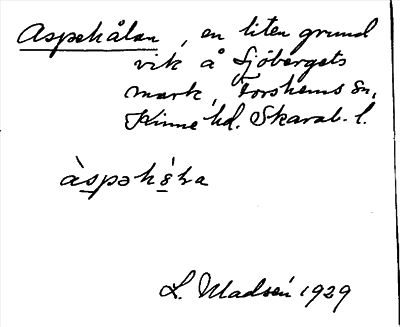 Aspekålan, en liten grund
vik å Sjöbergets
mark, Forshems sn,
Kinne hd. Skarab. l.
L. Madsén 1929